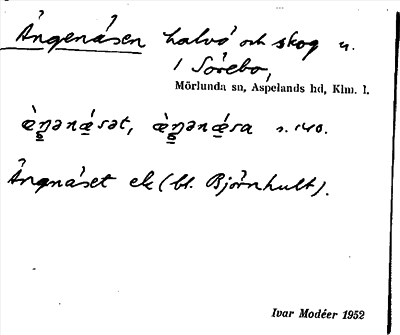 Ängenäsen halvö och skog n.
i Sörebo,
Mörlunda sn, Aspelands hd, Klm. l.
æ̀ŋənæ̀sət, æ̀ŋənæ̀sa s. 140.
Ängnäset ek (bl. Björnhult).
Ivar Modéer 1952